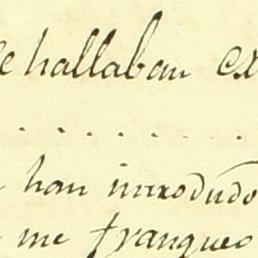 e hallaban ex
. . . . . . . .
han introdudo
me franqueo